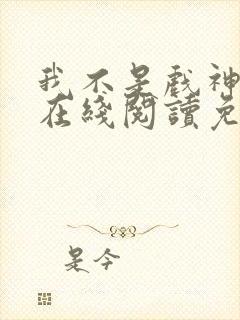 我不是戲神
在綫閱讀免
是今